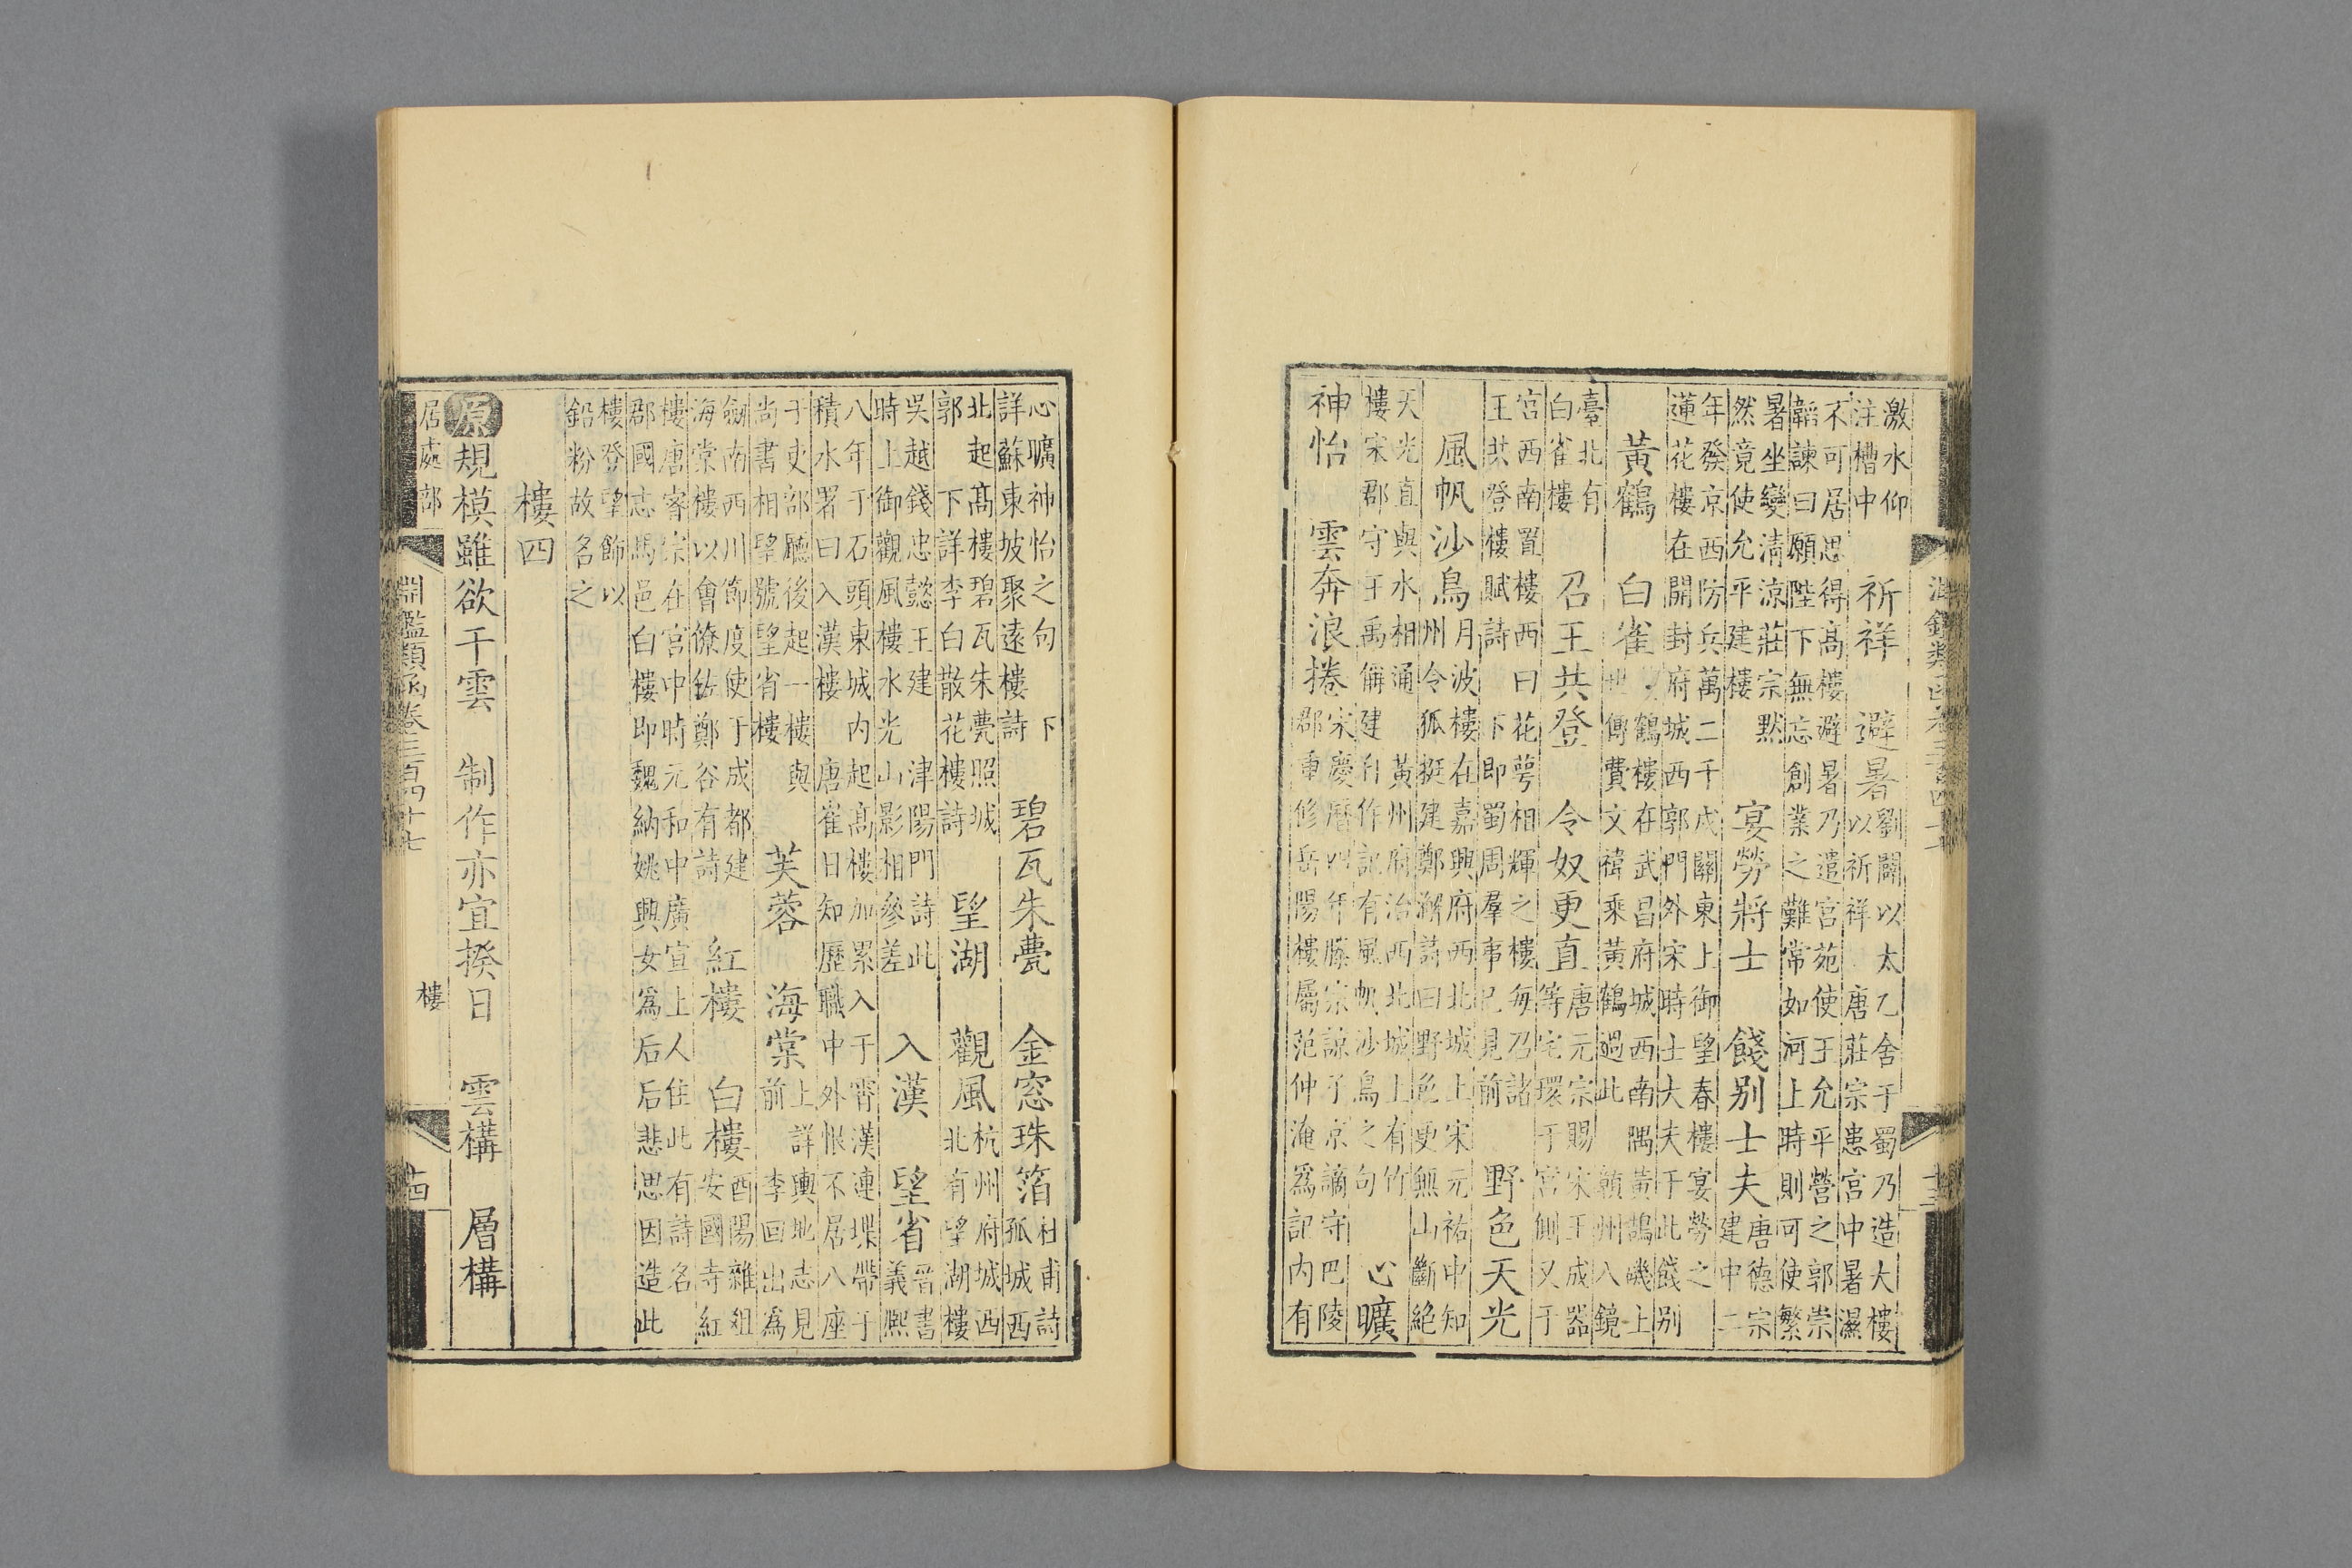 淵鑑類函卷三百四十七 十三
激水仰
注槽中
祈祥 避暑
劉闢以太乙舍于蜀乃造大樓
以祈祥 唐莊宗患宮中暑濕
不可居思得高樓避暑乃遣宮苑使于允平營之郭崇
韜諫曰願陛下無忘創業之難常如河上時則可使繁
暑坐變清涼莊宗默
然竟使允平建樓
宴勞將士 餞别士夫
唐德宗
建中二
年發京西防兵萬二千戍關東上御望春樓宴勞之
蓮花樓在開封府城西郭門外宋時士大夫于此餞别
黃鶴 白雀
鶴樓在武昌府城西南隅黃鵠磯上
世傳費文禕乘黃鶴過此 潁州八鏡
臺北有
白雀樓
召王共登 令奴更直
唐元宗賜宋王成器
等宅環于宮側又于
宮西南置樓西曰花萼相輝之樓每召諸
王共登樓賦詩 下即蜀周羣事已見前
野色天光
風帆沙鳥
月波樓在嘉興府西北城上宋元祐中知
州令狐挺建鄭獬詩曰野色更無山斷絕
天光直與水相通 黃州府治西北城上有竹
樓宋郡守王禹偁建并作記有風帆沙鳥之句
心曠
神怡 雲奔浪捲
宋慶曆四年滕宗諒子京謫守巴陵
郡重修岳陽樓屬范仲淹爲記内有
心曠神怡之句 下
詳蘇東坡聚遠樓詩
碧瓦朱甍 金窓珠箔
杜甫詩
孤城西
北起高樓碧瓦朱甍照城
郭 下詳李白散花樓詩
望湖 觀風
杭州府城西
北有望湖樓
吳越錢忠懿王建 津陽門詩此
時上御觀風樓水光山影相參差
入漢 望省
晉書
義熙
八年于石頭東城内起高樓加累入于霄漢連堞帶于
積水署曰入漢樓 唐崔日知歷職中外恨不居八座
于吏部廳後起一樓與
尚書相望號望省樓
芙蓉 海棠
上詳輿地志見
前 李回出爲
劒南西川節度使于成都建
海棠樓以會僚佐鄭谷有詩
紅樓 白樓
酉陽雜俎
安國寺紅
樓唐睿宗在宮中時元和中廣宣上人住此有詩名
郡國志馬邑白樓即魏納姚興女爲后后悲思因造此
樓登望飾以
鉛粉故名之
樓四
原規模雖欲干雲 制作亦宜揆日 雲構 層構
居處部 淵鑑類函卷三百四十七 樓 十四